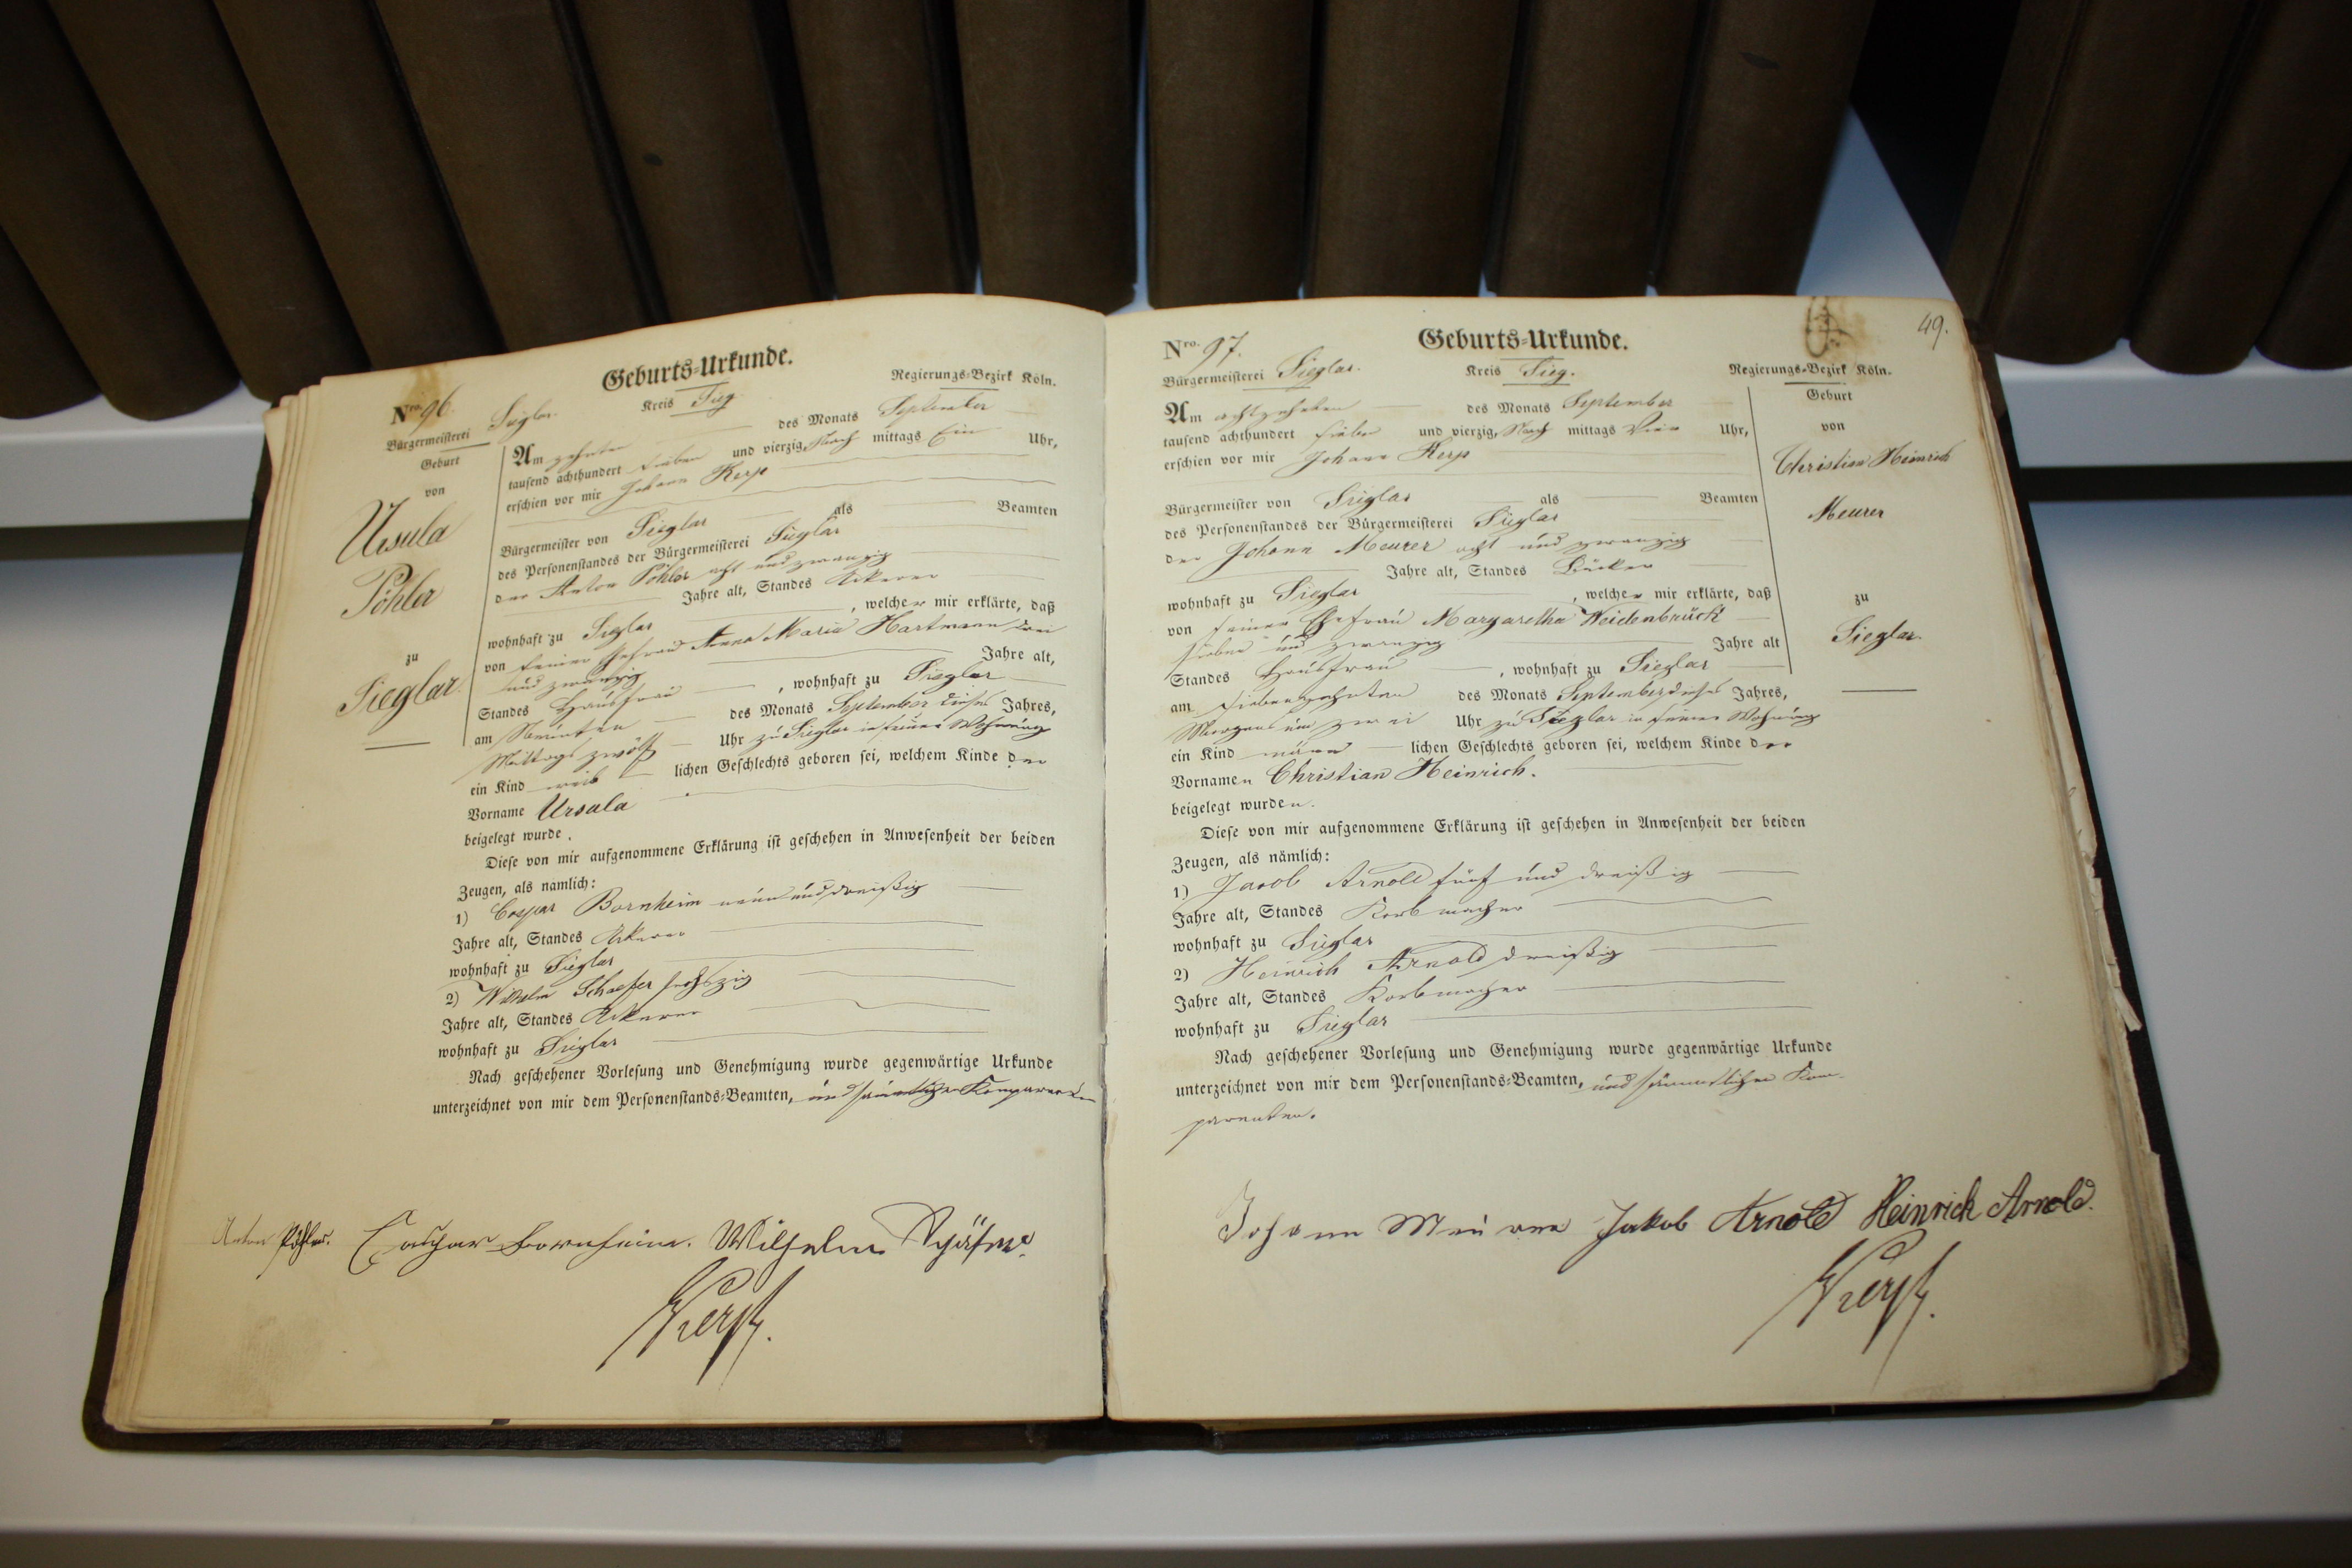 Nro. 96.
Geburts-Urkunde.
Bürgermeisterei Sieglar.
Kreis Sieg
Regierungs-Bezirk Köln.
Geburt
von
Ursula
Pöhler
zu
Sieglar.
Am zehnten des Monats September
tausend achthundert sieben und vierzig, Nach mittags Ein Uhr,
erschien vor mir Johann Kerp
Bürgermeister von Sieglar als Beamten
des Personenstandes der Bürgermeisterei Sieglar
der Anton Pöhler acht und zwanzig
Jahre alt, Standes Ackerer
wohnhaft zu Sieglar, welcher mir erklärte, daß
von seiner Ehefrau Anna Maria Hartmann drei
und zwanzig Jahre alt,
Standes Hausfrau, wohnhaft zu Sieglar
am Neunten des Monats September dieses Jahres,
Mittags zwölf Uhr zu Sieglar in seiner Wohnung
ein Kind weib lichen Geschlechts geboren sei, welchem Kinde der
Vorname Ursula
beigelegt wurde.
Diese von mir aufgenommene Erklärung ist geschehen in Anwesenheit der beiden
Zeugen, als nämlich:
1) Caspar Bornheim neun und dreißig
Jahre alt, Standes Ackerer
wohnhaft zu Sieglar
2) Wilhelm Schaefer sechszig
Jahre alt, Standes Ackerer
wohnhaft zu Sieglar
Nach geschehener Vorlesung und Genehmigung wurde gegenwärtige Urkunde
unterzeichnet von mir dem Personenstands-Beamten, und sämmtlichen Komparenten
Anton Pöhler. Caspar Bornheim. Wilhelm Schäfer
Kerp.
49.
Nro. 97.
Geburts-Urkunde.
Bürgermeisterei Sieglar.
Kreis Sieg.
Regierungs-Bezirk Köln.
Am achtzehnten des Monats September
tausend achthundert sieben und vierzig, Nach mittags Vier Uhr,
erschien vor mir Johann Kerp
Bürgermeister von Sieglar als Beamten
des Personenstandes der Bürgermeisterei Sieglar
der Johann Meurer acht und zwanzig
Jahre alt, Standes Bäcker
wohnhaft zu Sieglar, welcher mir erklärte, daß
von seiner Ehefrau Margaretha Weidenbrück
sieben und zwanzig Jahre alt
Standes Hausfrau, wohnhaft zu Sieglar
am siebenzehnten des Monats September dieses Jahres,
Morgens um zwei Uhr zu Sieglar in seiner Wohnung
ein Kind männ lichen Geschlechts geboren sei, welchem Kinde der
Vornamen Christian Heinrich.
beigelegt wurden.
Diese von mir aufgenommene Erklärung ist geschehen in Anwesenheit der beiden
Zeugen, als nämlich:
1) Jacob Arnold fünf und dreißig
Jahre alt, Standes Korbmacher
wohnhaft zu Sieglar
2) Heinrich Arnold dreißig
Jahre alt, Standes Korbmacher
wohnhaft zu Sieglar
Nach geschehener Vorlesung und Genehmigung wurde gegenwärtige Urkunde
unterzeichnet von mir dem Personenstands-Beamten, und sämmtlichen Kom-
parenten.
Johann Meurer Jakob Arnold Heinrich Arnold.
Kerp.
Geburt
von
Christian Heinrich
Meurer
zu
Sieglar.